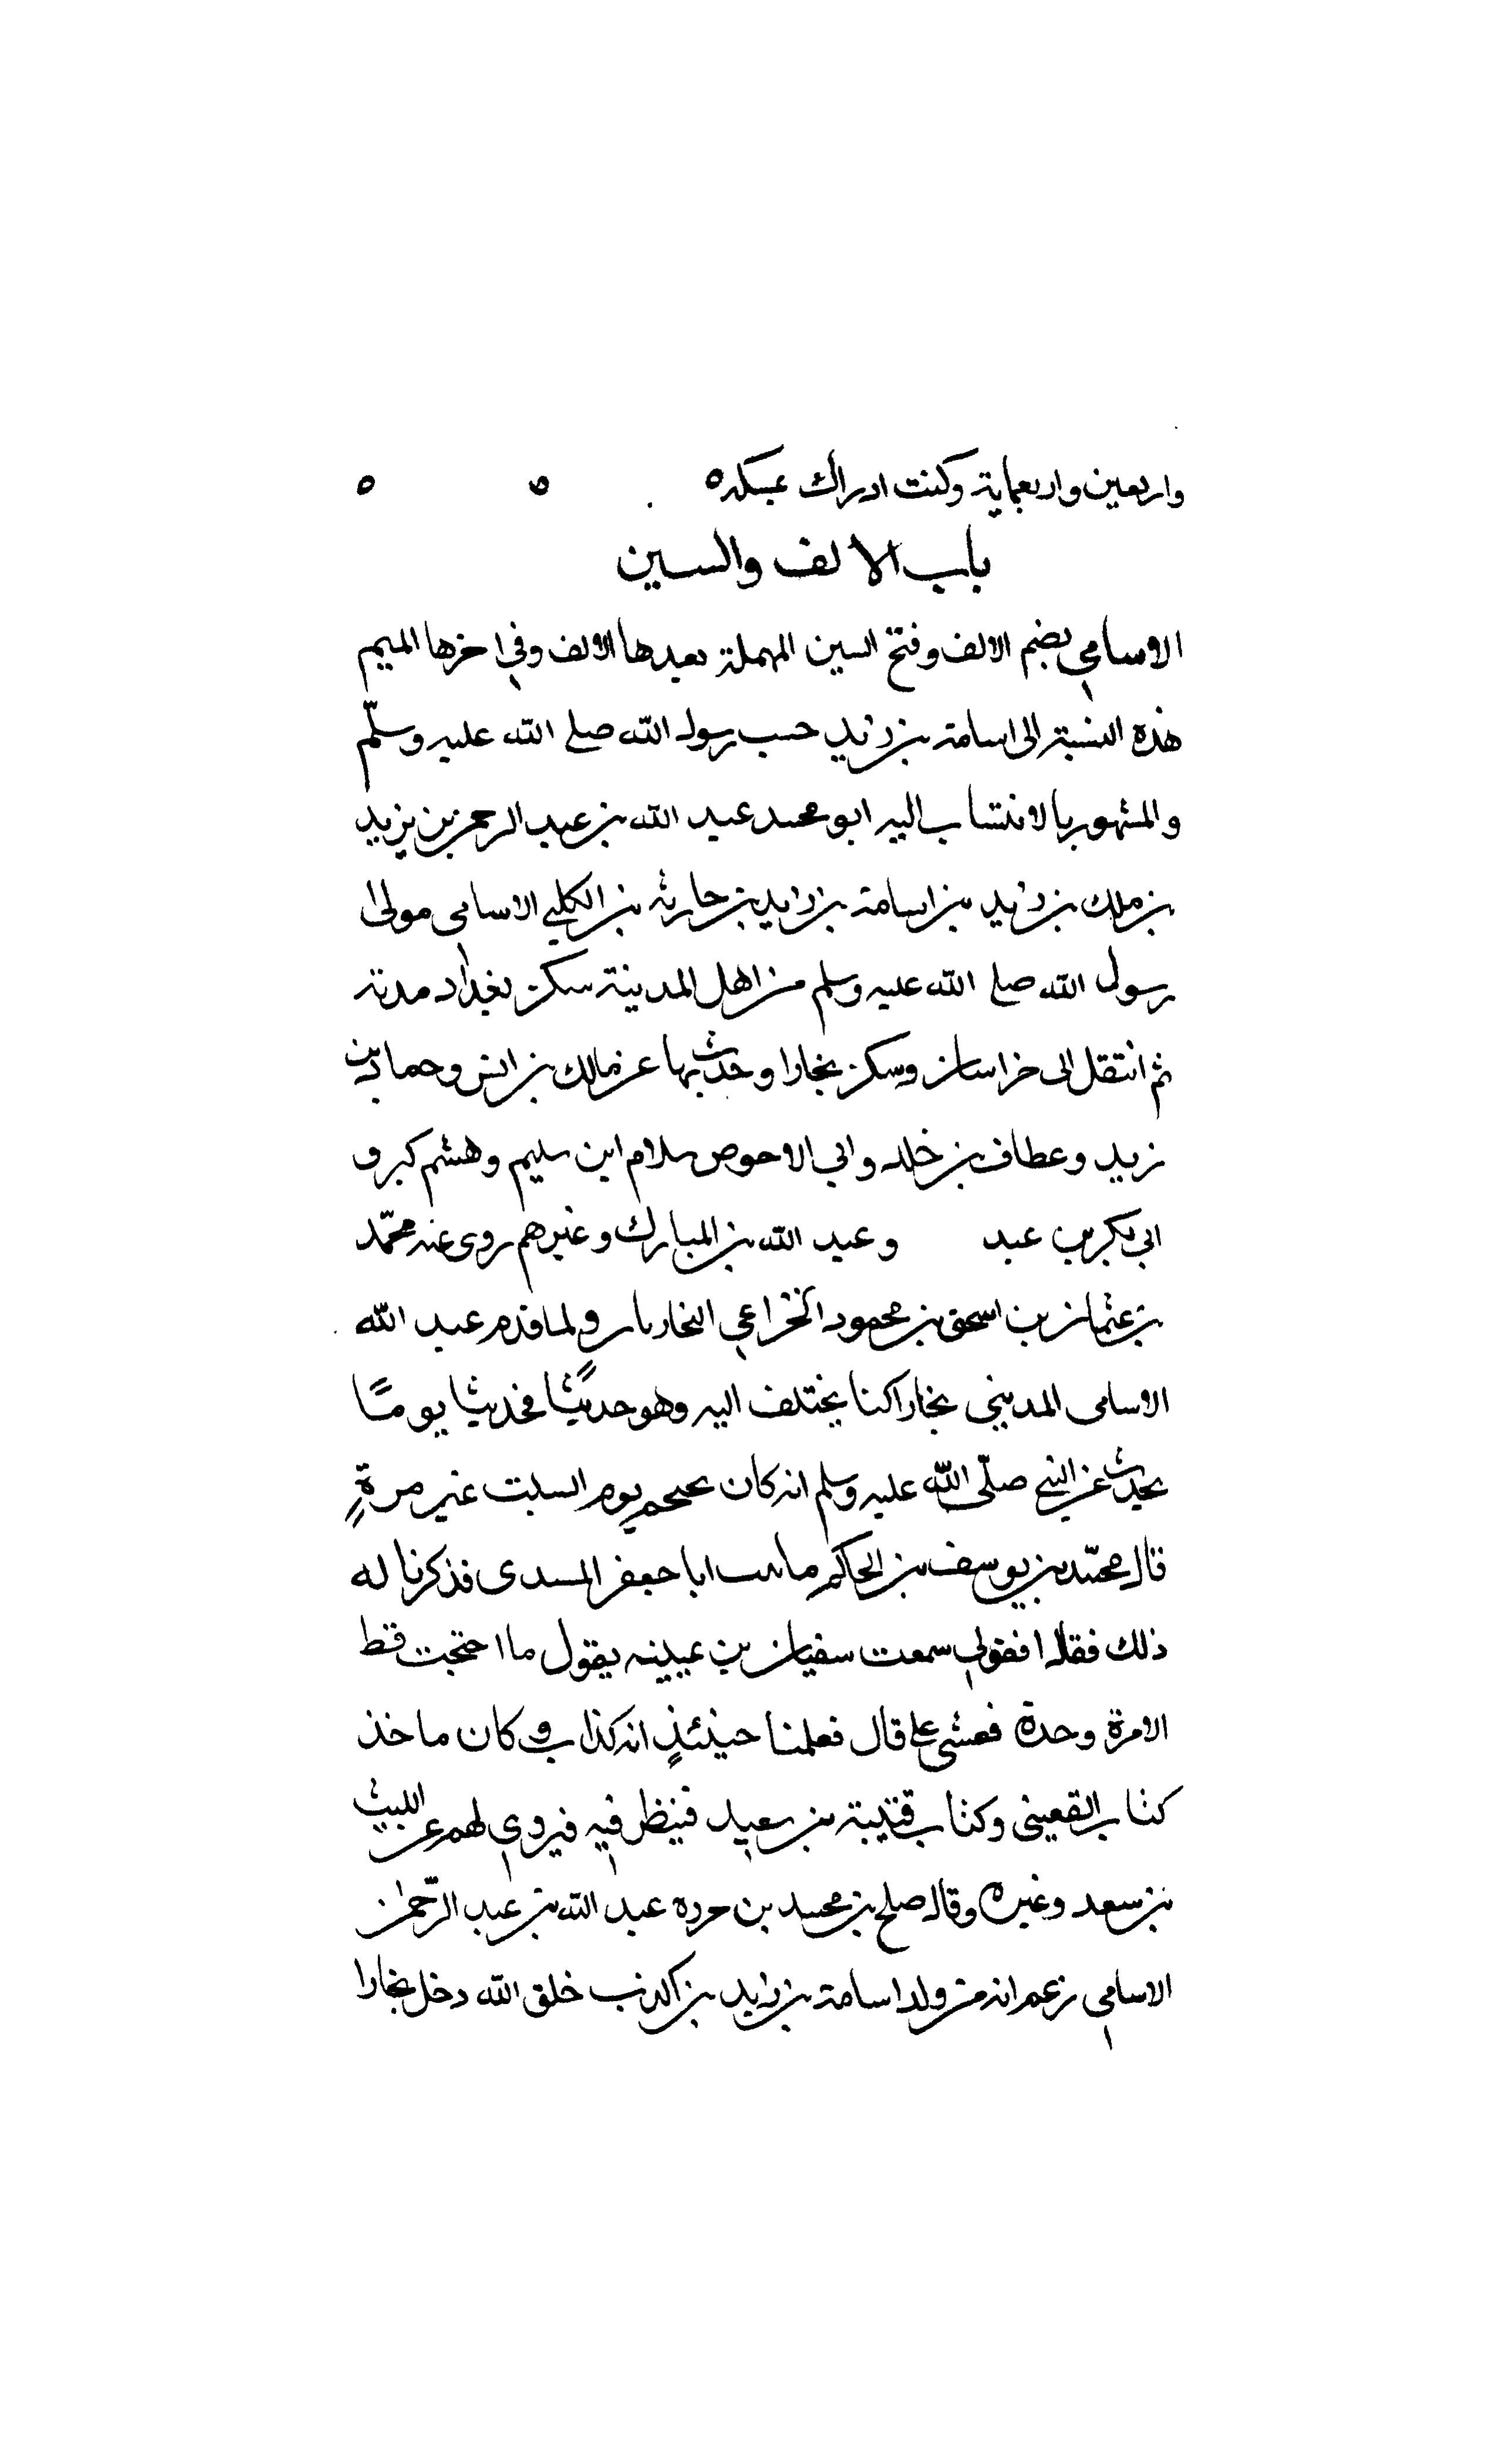 واربعين واربعماية وكنت ادراك عسكره ه ه
باب الالف والسين
الاسامي بضم الالف وفتح السين المهملة بعدها الالف وفي اخرها الميم
هذه النسبة الى اسامة بن زيد حب رسول الله صلى الله عليه وسلّم
والمشهور بالانتساب اليه ابو محمد عبد الله بن عبد الرحمن بن يزيد
بن ملك بن زيد بن اسامة بن زايد بن حارثة بن الكلبي الاسامي مولى
رسول الله صلى الله عليه وسلم من اهل المدينة سكن بغداد مدة
ثم انتقل الى خراسان وسكن بخارا وحدث بها عن مالك بن انس وحماد بن
زيد وعطاف بن خلد وابي الاحوص سلام ابن سليم وهشم
ابي بكر بن عبد وعبد الله بن المبارك وغيرهم روى عنه محمّد
بن عثمان بن اسحق بن محمود الخزاعي ولما قدم عبد الله
الاسامي المديني بخارا كنا يختلف اليه وهو حديثًا فحديثا يومًا
يحدث عن النبي صلّى الله عليه وسلم انه كان يحتجم يوم السبت غير مرةٍ
قال محمّد بن يوسف بن الحاكم ابا جعفر المسندى فذكرنا له
ذلك فقال ا فقولي سمعت سفيان بن عيينه يقول ما احتجت قط
الا مرة وحدة فغشي علي قال فعلمنا حينئذٍ انه كذاب و كان ماخذ
كتاب القعيني وكتاب قتيبة بن سعيد فينظر فيه فيروي لهم عن الليث
بن سعد وغيره وقال صلح بن محمد بن حرده عبد الله بن عبد الرّحمن
الاسامي زعم انه من ولد اسامة بن زايد بن اكذب خلق الله دخل بخارا